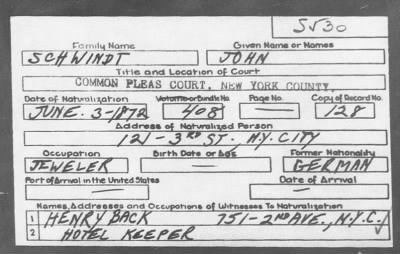 S530
Family Name Given Name or Names
SCHWINDT JOHN
Title and Location of Court
COMMON PLEAS COURT, NEW YORK COUNTY.
Date of Naturalization Volume or Bundle No. Page No. Copy of Record No.
JUNE. 3-1872 408 — 128
Address of Naturalized Person
121-3RD ST. N.Y. CITY
Occupation Birth Date or Age Former Nationality
JEWELER — GERMAN
Port of Arrival in the United States Date of Arrival
— —
Names, Addresses and Occupations of Witnesses To Naturalization
1 HENRY BACK 751-2ND AVE., N.Y.C.
2 HOTEL KEEPER